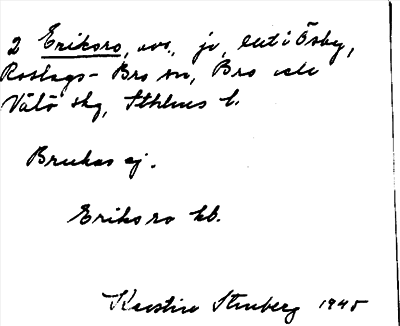 2 Eriksro, avs., jv, lht i Ösby,
Roslags-Bro sn, Bro och
Vätö skg, Sthlms l.
Brukas ej.
Eriksro kb.
Kerstin Stenberg 1945